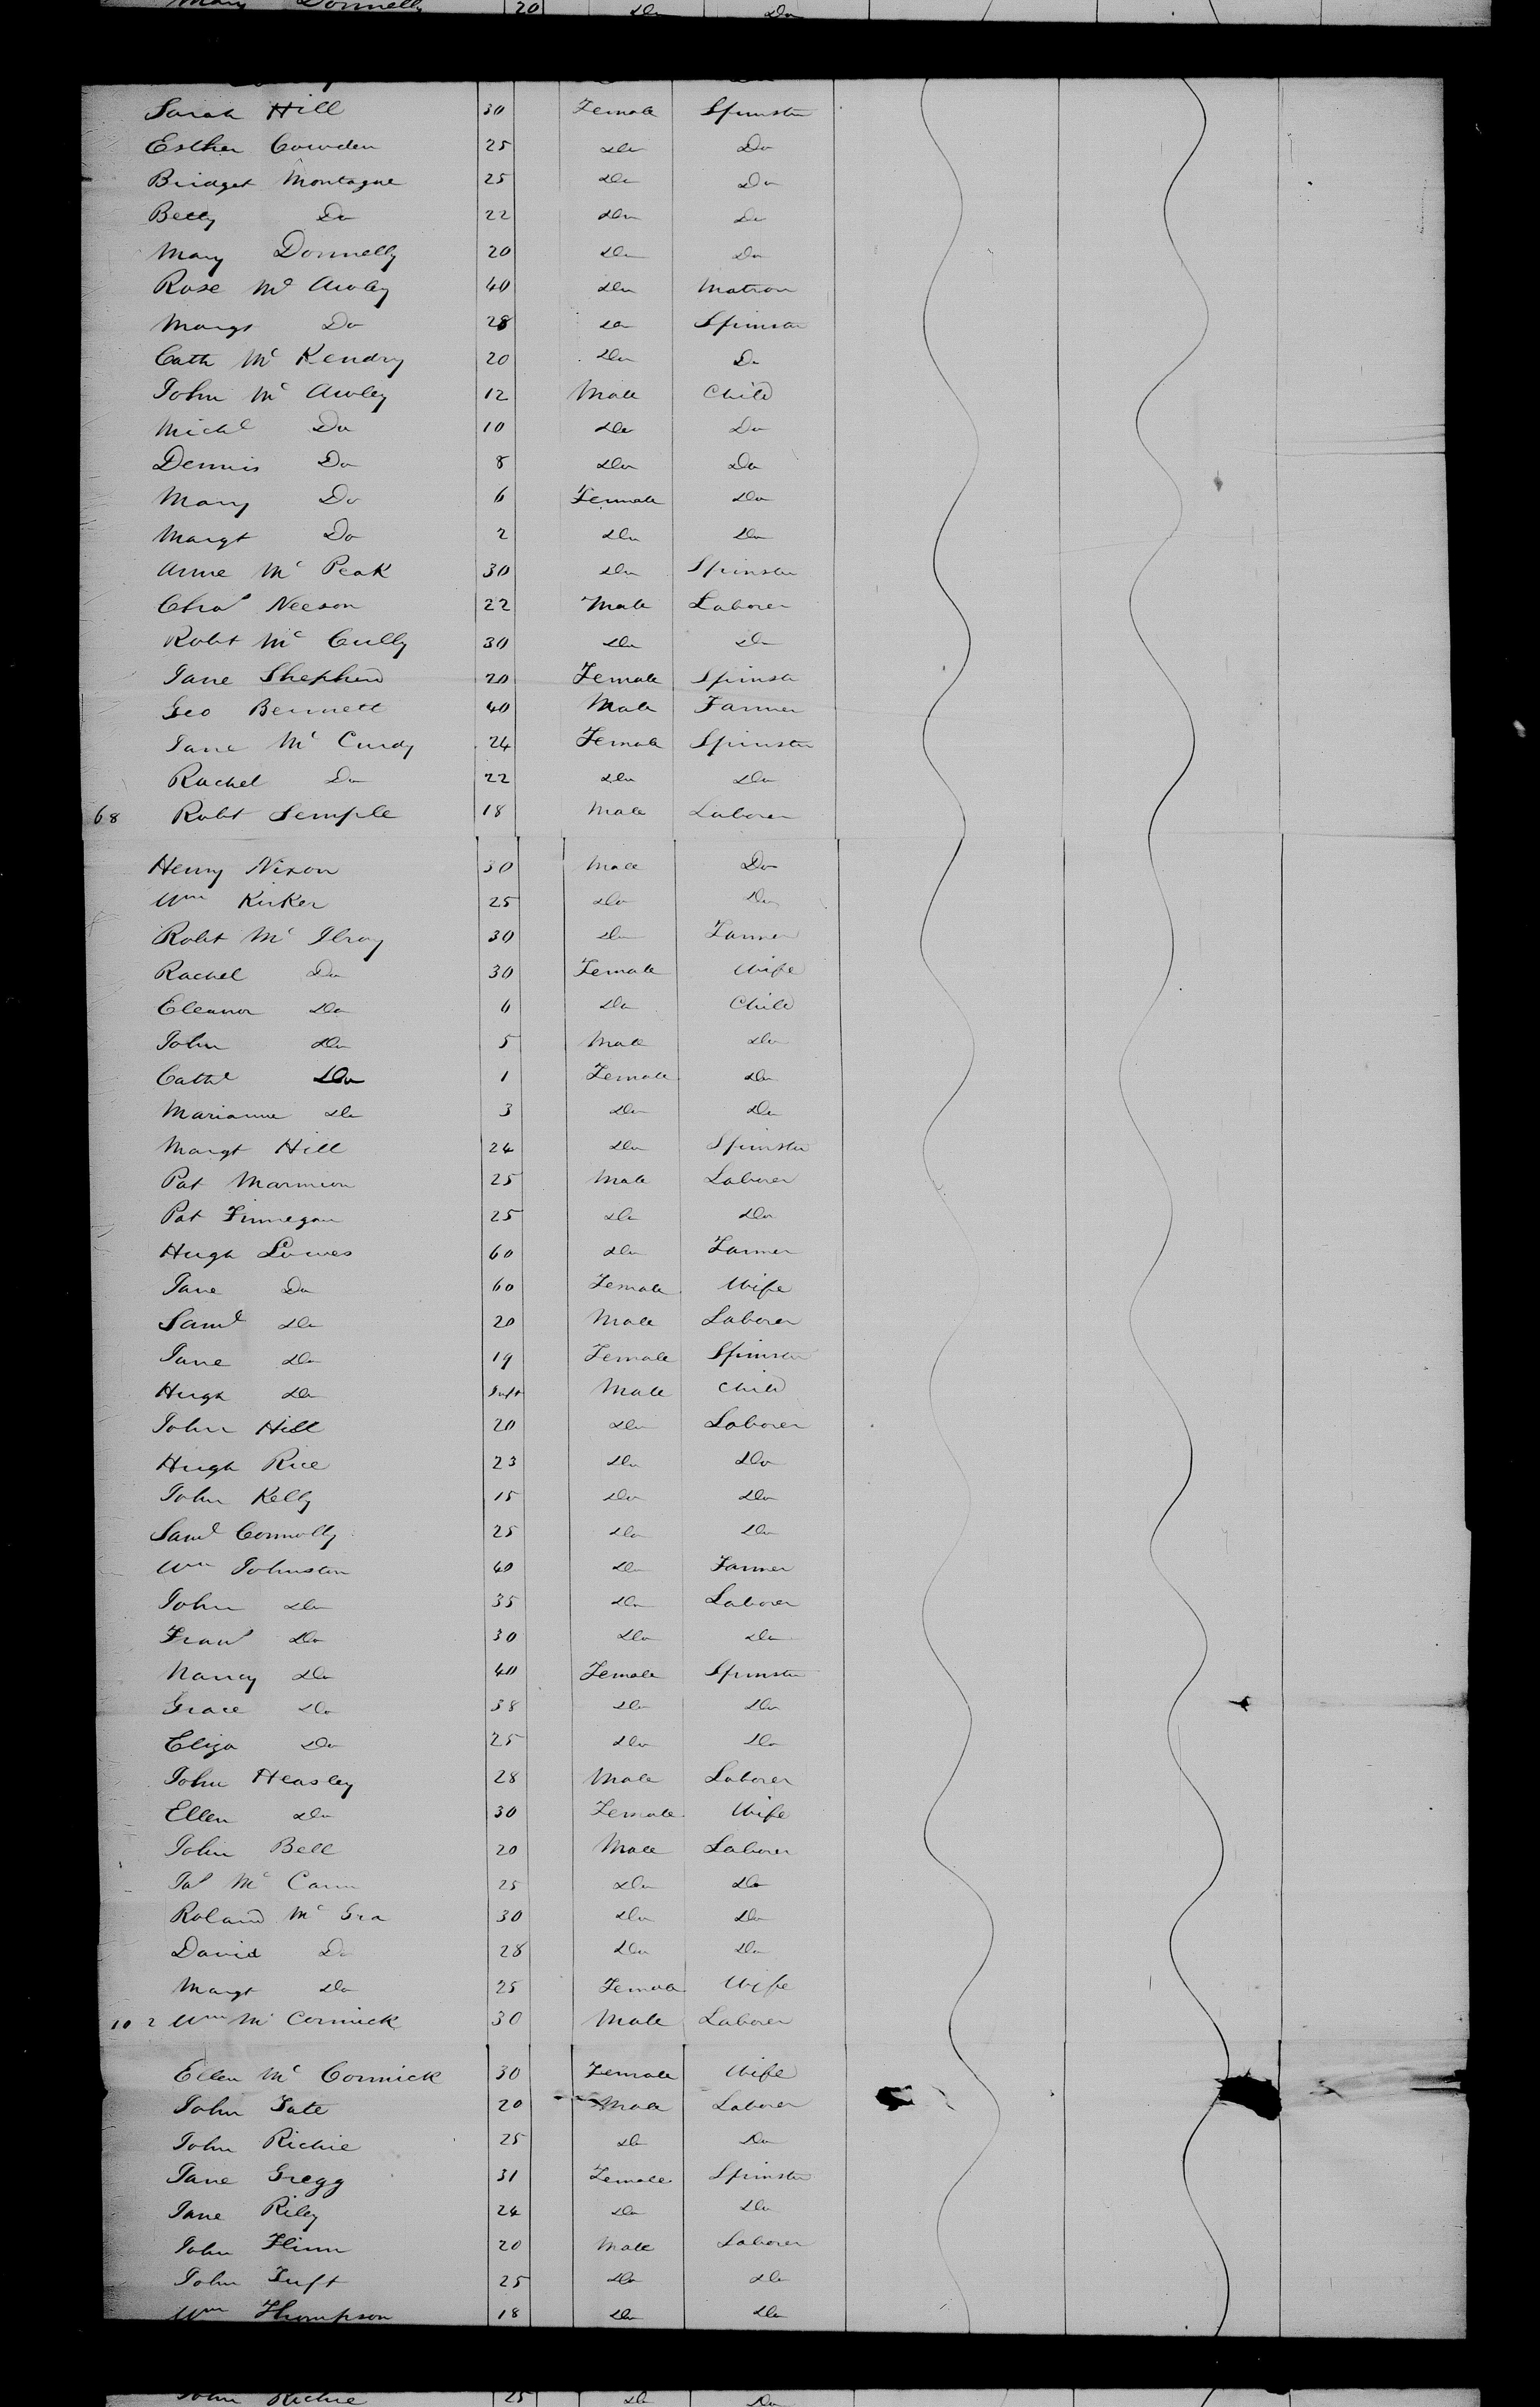 Mary Donnelly 20 Do Do
Sarah Hill 30 Female Spinster
Esther Cowden 25 Do Do
Bridget Montague 25 Do Do
Betty Do 22 Do Do
Mary Donnelly 20 Do Do
Rose Mc Auley 40 Do Matron
Margt Do 28 Do Spinster
Cath Mc Kendry 20 Do Do
John Mc Auley 12 Male Child
Michl Do 10 Do Do
Dennis Do 8 Do Do
Mary Do 6 Female Do
Margt Do 2 Do Do
Anne Mc Peak 30 Do Spinster
Chas Neeson 22 Male Laborer
Robt Mc Cully 30 Do Do
Jane Shepherd 20 Female Spinster
Geo Bennett 40 Male Farmer
Jane Mc Curdy 24 Female Spinster
Rachel Do 22 Do Do
68 Robt Semple 18 Male Laborer
Henry Nixon 30 Male Do
Wm Kirker 25 Do Do
Robt Mc Ilroy 30 Do Farmer
Rachel Do 30 Female Wife
Eleanor Do 6 Do Child
John Do 5 Male Do
Cathe Do 1 Female Do
Marianne Do 3 Do Do
Margt Hill 24 Do Spinster
Pat Marmion 25 Male Laborer
Pat Finnegan 25 Do Do
Hugh 60 Do Farmer
Jane Do 60 Female Wife
Saml Do 20 Male Laborer
Jane Do 19 Female Spinster
Hugh Do Inft Male Child
John Hill 20 Do Laborer
Hugh Rice 23 Do Do
John Kelly 15 Do Do
Saml Connolly 25 Do Do
Wm Johnston 40 Do Farmer
John Do 35 Do Laborer
Frans Do 30 Do Do
Nancy Do 40 Female Spinster
Grace Do 38 Do Do
Eliza Do 25 Do Do
John Heasley 28 Male Laborer
Ellen Do 30 Female Wife
John Bell 20 Male Laborer
Jas Mc Cann 25 Do Do
Roland Mc Gra 30 Do Do
David Do 28 Do Do
Margt Do 25 Female Wife
102 Wm Mc Cormick 30 Male Laborer
Ellen Mc Cormick 30 Female Wife
John Tate 20 Male Laborer
John Richie 25 Do Do
Jane Gregg 31 Female Spinster
Jane Riley 24 Do Do
John Flinn 20 Male Laborer
John Tuft 25 Do Do
Wm Thompson 18 Do Do
John Richie 25 Do Do